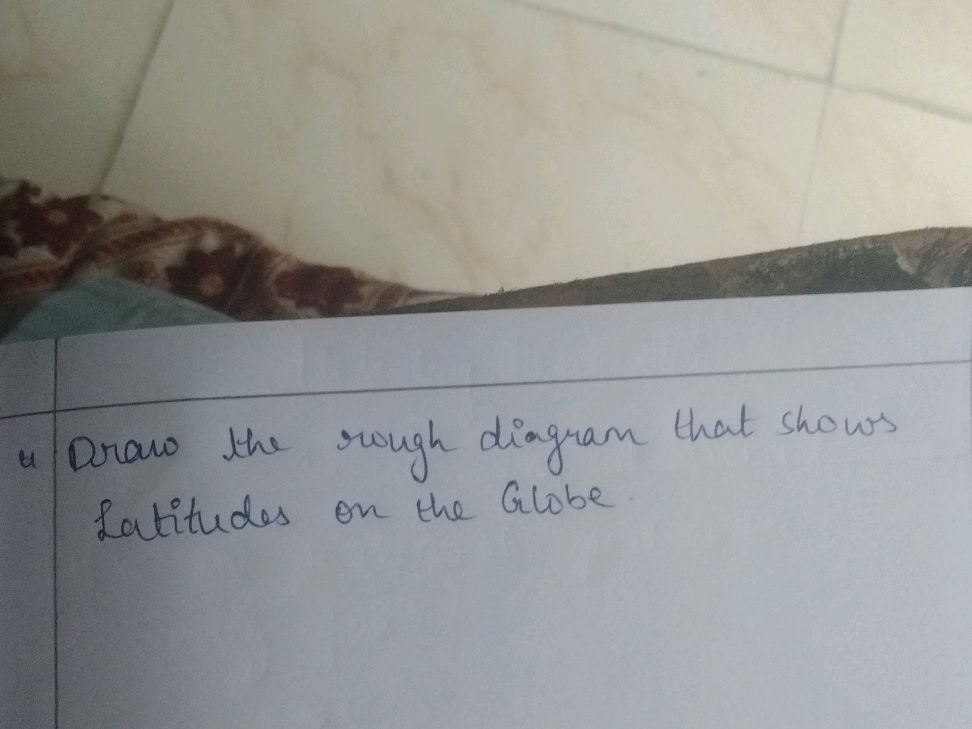 4 Draw the rough diagram that shows
Latitudes on the Globe.